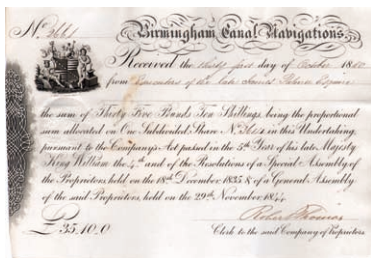 No. 2661 Birmingham Canal Navigations,
Received the thirty first day of October 18
from of the late James Esquire
the sum of Thirty Five Pounds Ten Shillings, being the proportional
sum allocated on One Subdivided Share No. in this Undertaking,
pursuant to the Company's Act passed in the 5th Year of his late Majesty
King William the 4th and of the Resolutions of a Special Assembly of
the Proprietors, held on the 18th December 1835 & of a General Assembly
of the said Proprietors, held on the 29th November 1844
£ 35.10.0 Robert Thomas
Clerk to the said Company of Proprietors